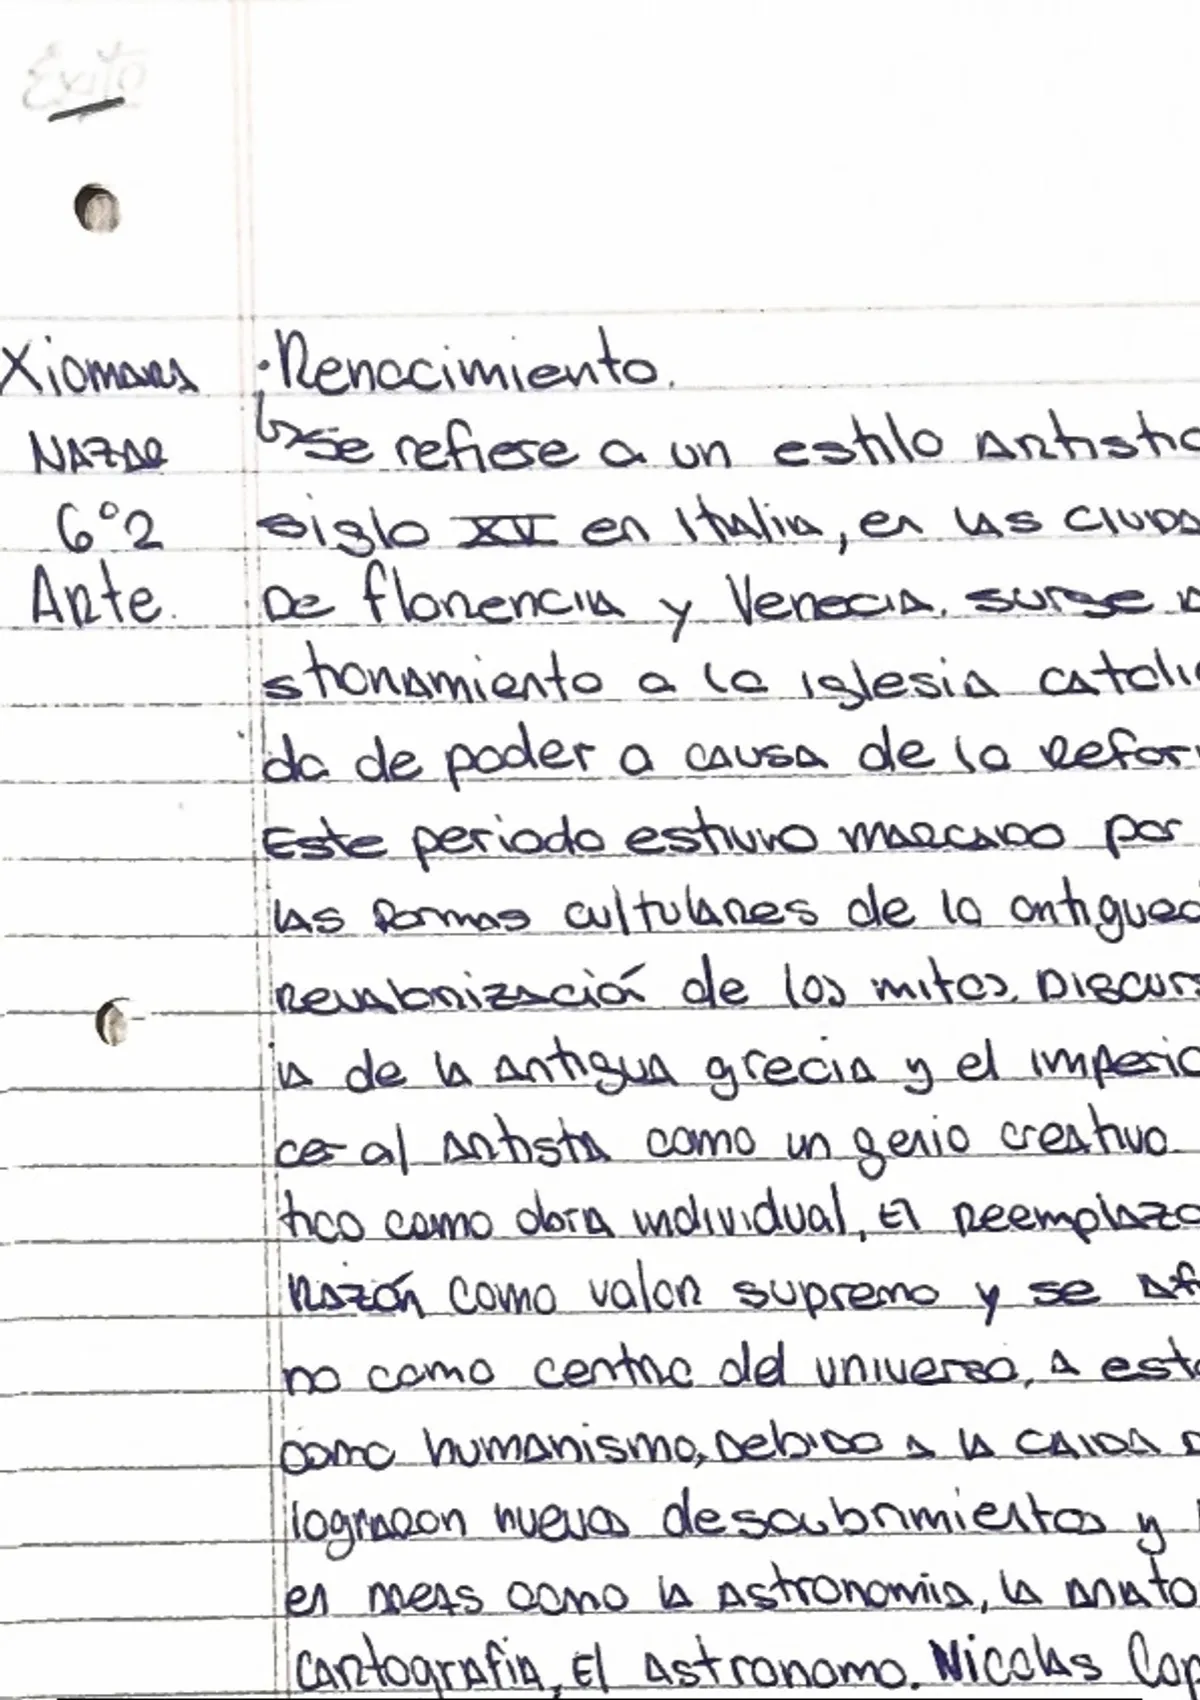 Exito
Xiomara
Nazar
6°2
Arte.
·Renacimiento.
↳Se refiere a un estilo Artistic
siglo XV en Italia, en las ciuda
De florencia y Venecia. surge a
stionamiento a la iglesia catolic
da de poder a causa de la Refor
Este periodo estuvo marcado por
las formas culturares de la antigued
revalorización de los mitos. Discurs
ia de la antigua grecia y el imperio
ce al artista como un genio creativo
tico como obra individual, El reemplazo
Razón como valor supremo y se af
no como centro del universo, a esto
como humanismo, Debido a la caida d
lograron nuevos descubrimientos y
en areas como la Astronomia, la anato
cartografia, El Astronomo. Nicolas Cop